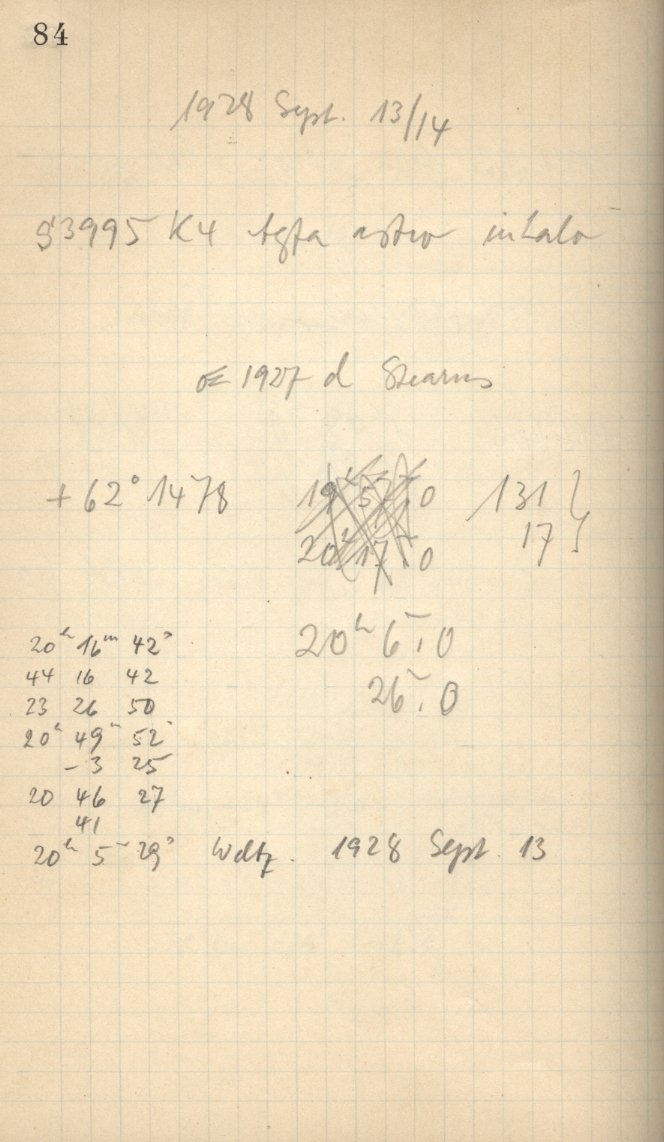 84
1928 Sept. 13/14
3995 K4 Agfa astro inhalo
1927 d Stearns
+62° 1478 131 }
17
20ʰ 6ᵐ,0
26ᵐ,0
20ʰ 16ᵐ 42ˢ
44 16 42
23 26 50
20ʰ 49ᵐ 52ˢ
-3 25
20 46 27
41
20ʰ 5ᵐ 29ˢ Weltz. 1928 Sept. 13